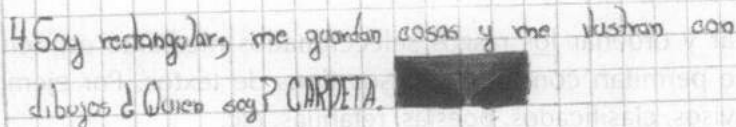 4 Soy rectangular, me guardan cosas y me ilustran con
dibujos ¿Quien soy? CARPETA.